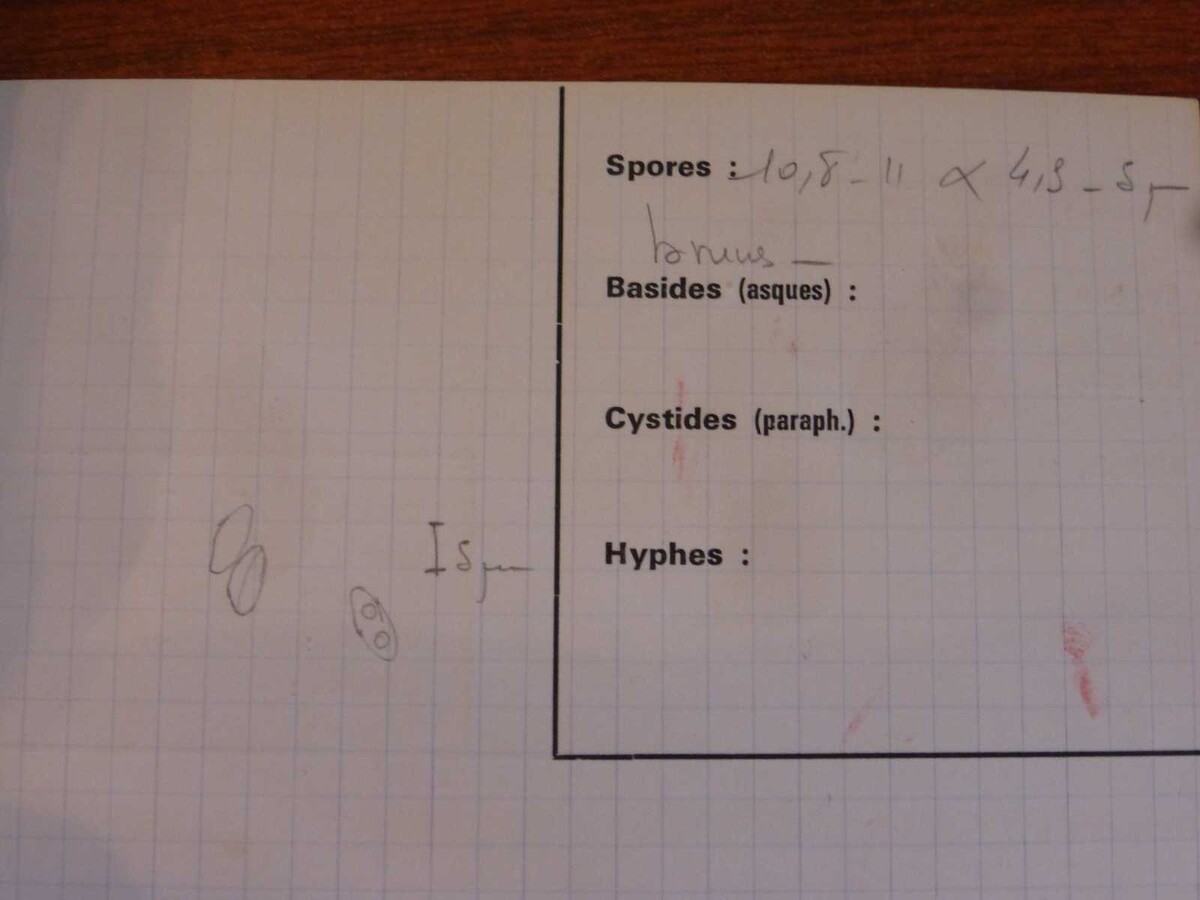 Spores : 10,8 - 11 x 4,9 - 5 µm
brunes -
Basides (asques) :
Cystides (paraph.) :
I 5 µm
Hyphes :